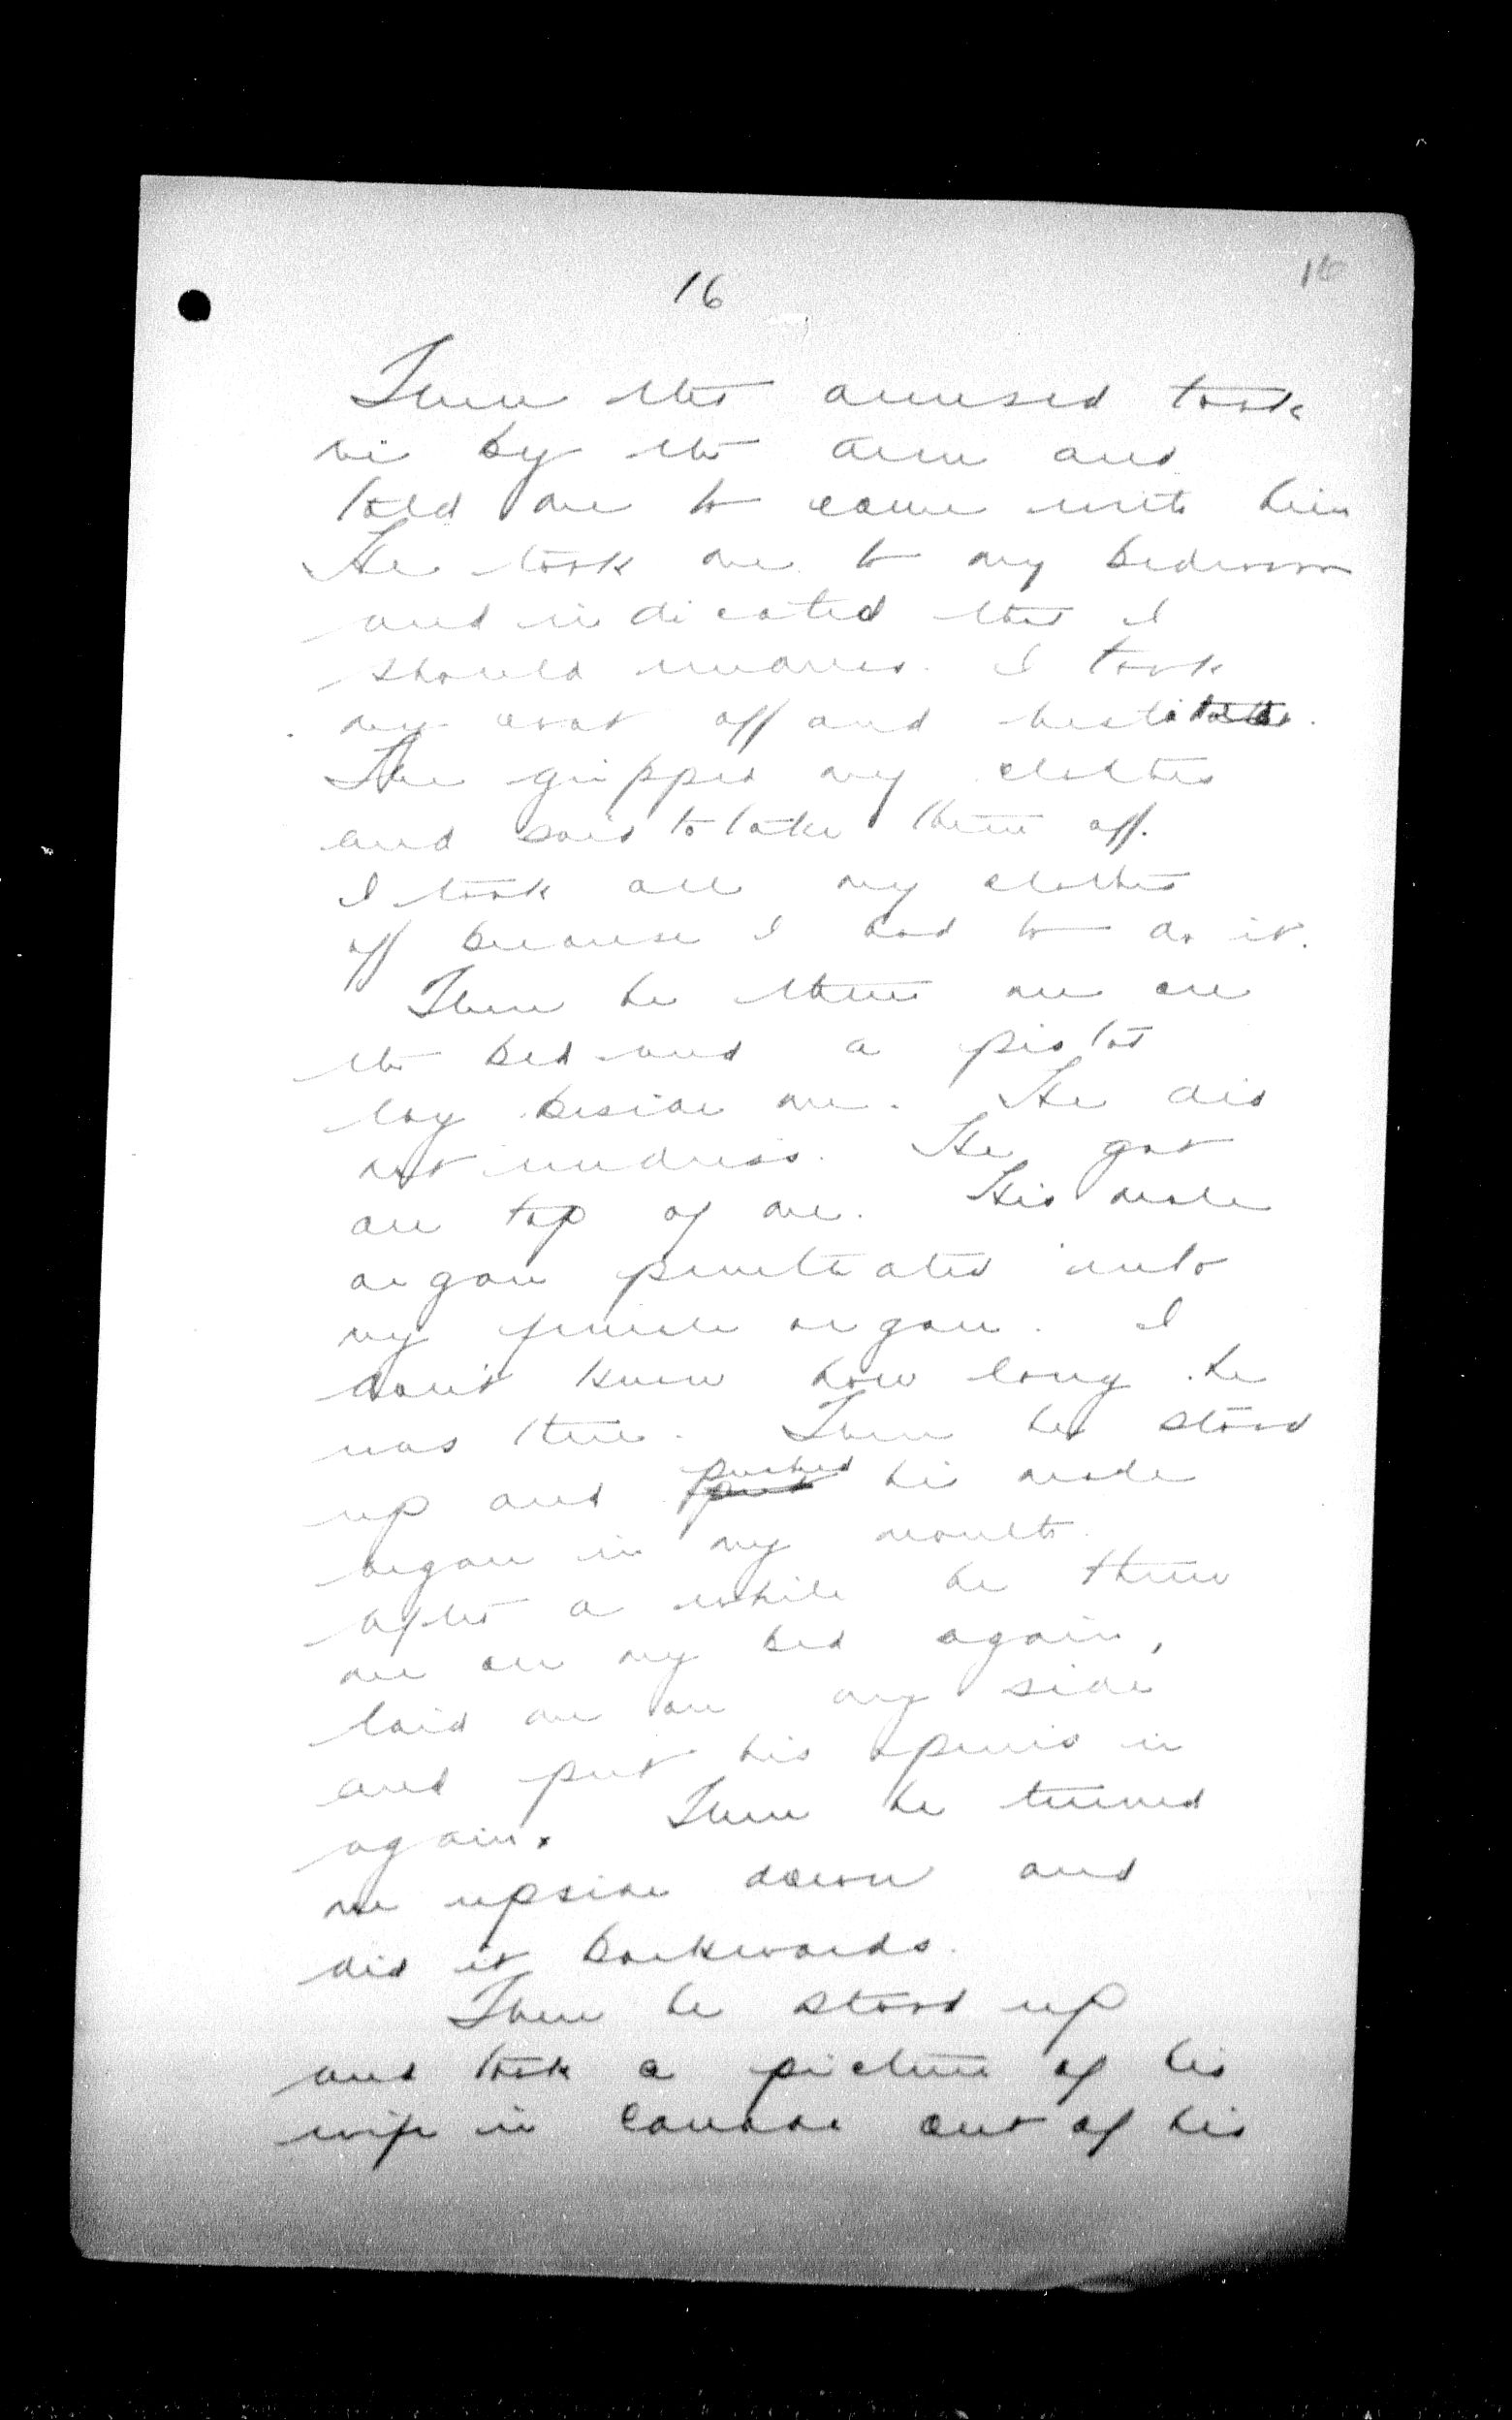 16
16
Then the accused took
me by the arm and
told me to come with him
He took me to my bedroom
and indicated that I
should undress. I took
my coat off and hesitated.
He gripped my clothes
and said to take them off.
I took all my clothes
off because I had to do it.
Then he threw me on
the bed and a pistol
lay beside me. He did
not undress. He got
on top of me. His male
organ penetrated into
my female organ. I
don't know how long he
was there. Then he stood
up and pushed his male
organ in my mouth.
After a while he threw
me on my bed again,
laid me on my side
and put his penis in
again. Then he turned
me upside down and
did it backwards.
Then he stood up
and took a picture of his
wife in Canada out of his